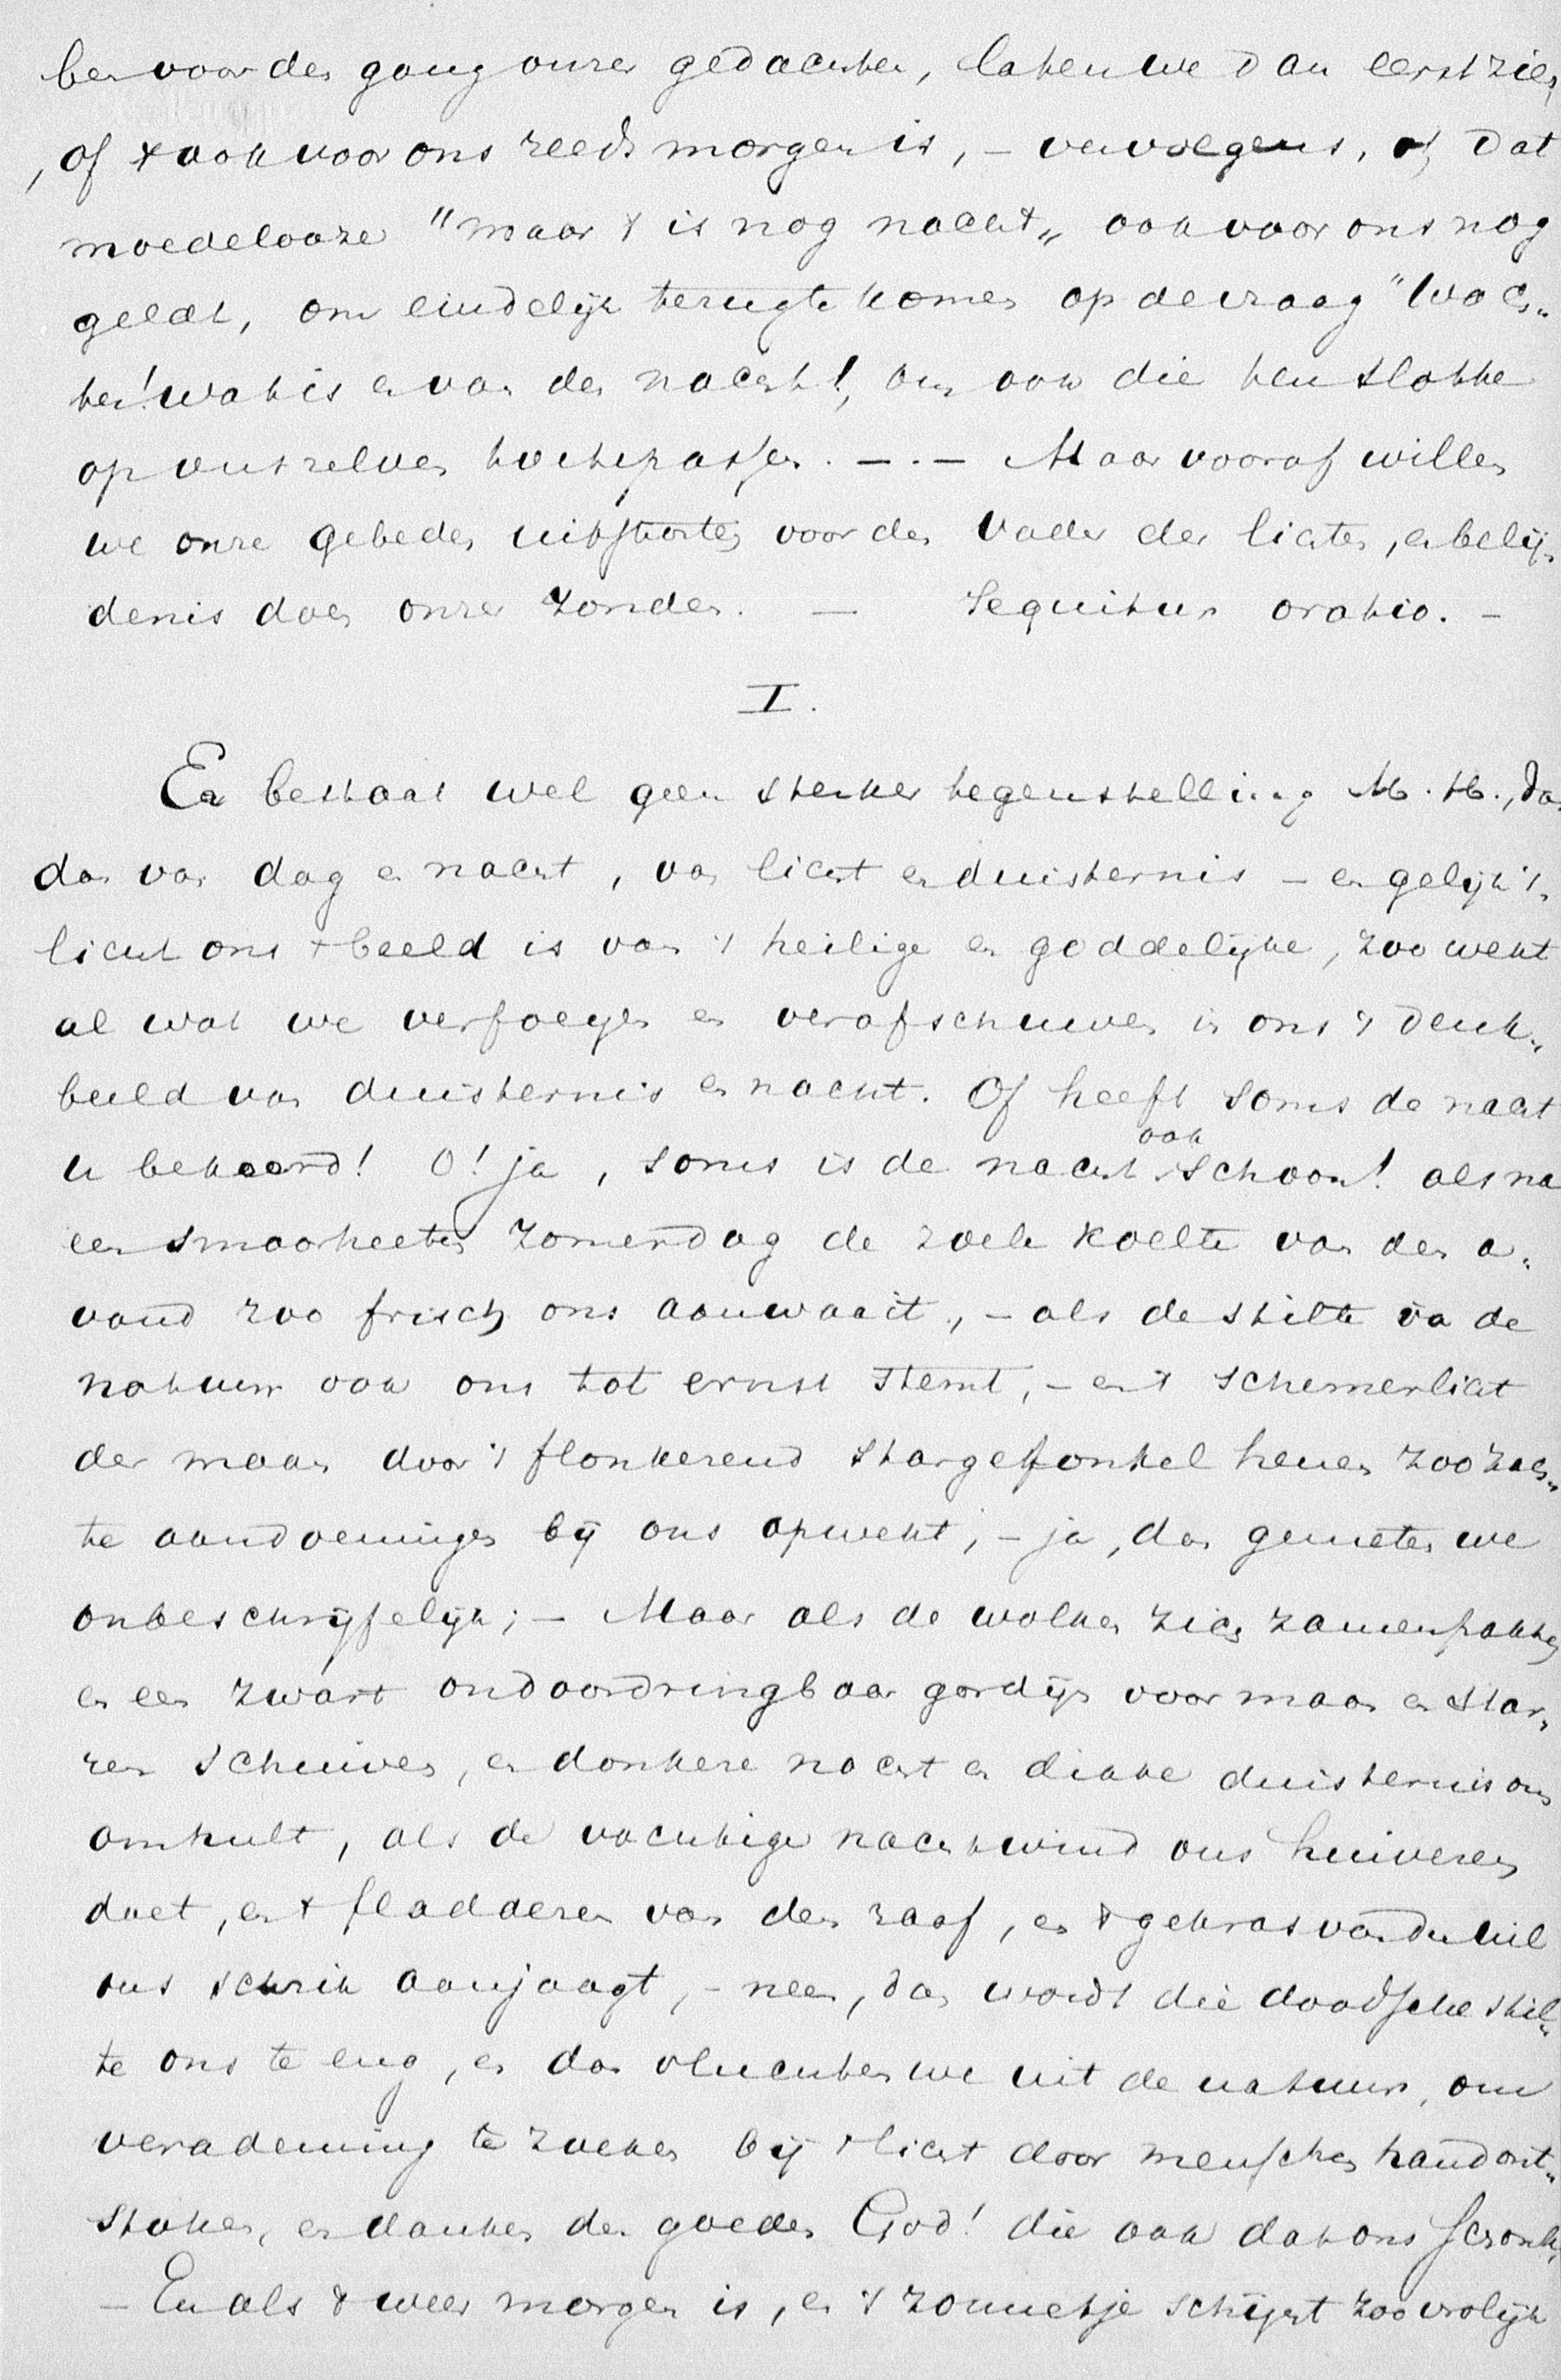 ben voor den gang onzer gedachten, laten we dan eerst zien,
, of 't ook voor ons reeds morgen is, – vervolgens, of dat
moedelooze "maar 't is nog nacht„ ook voor ons nog
geldt, om eindelijk terug te komen op de vraag "Wach„
ter! wat is er van den nacht!, om ook die ten slotte
op ons zelven toe te passen. —.— Maar vooraf willen
we onze gebeden uitstorten voor den Vader der lichten, en belij„
denis doen onzer zonden. — Sequitur oratio. –
I.
Er bestaat wel geen sterker tegenstelling M. H., dan
dan van dag en nacht, van licht en duisternis – en gelijk 't
licht ons 't beeld is van 't heilige en goddelijke, zoo wekt
al wat we verfoeyen en verafschuwen in ons 't denk„
beeld van duisternis en nacht. Of heeft soms de nacht
u bekoord! O! ja, soms is de nacht ook schoon! als na
een smoorheeten zomerdag de zoele koelte van den a„
vond zoo frisch ons aanwaait, – als de stilte va de
natuur ook ons tot ernst stemt, – en 't schemerlicht
der maan door 't flonkerend stargefonkel henen zoo zach„
te aandoeningen bij ons opwekt, – ja, dan genieten we
onbeschrijfelijk; – Maar als de wolken zich zamenpakken
en een zwart ondoordringbaar gordijn voor maan en star„
ren schuiven, en donkere nacht en dikke duisternis ons
omhult, als de vochtige nachtwind ons huiveren
doet, en 't fladderen van den raaf, en 't gekras van den uil
ons schrik aanjaagt, – neen, dan wordt die doodsche stil„
te ons te eng, en dan vluchten we uit de natuur, om
verademing te zoeken bij 't licht door menschen hand ont„
stoken, en danken den goeden God! die ook dat ons schonk,
– En als 't weer morgen is, en 't zonnetje schijnt zoo vrolijk